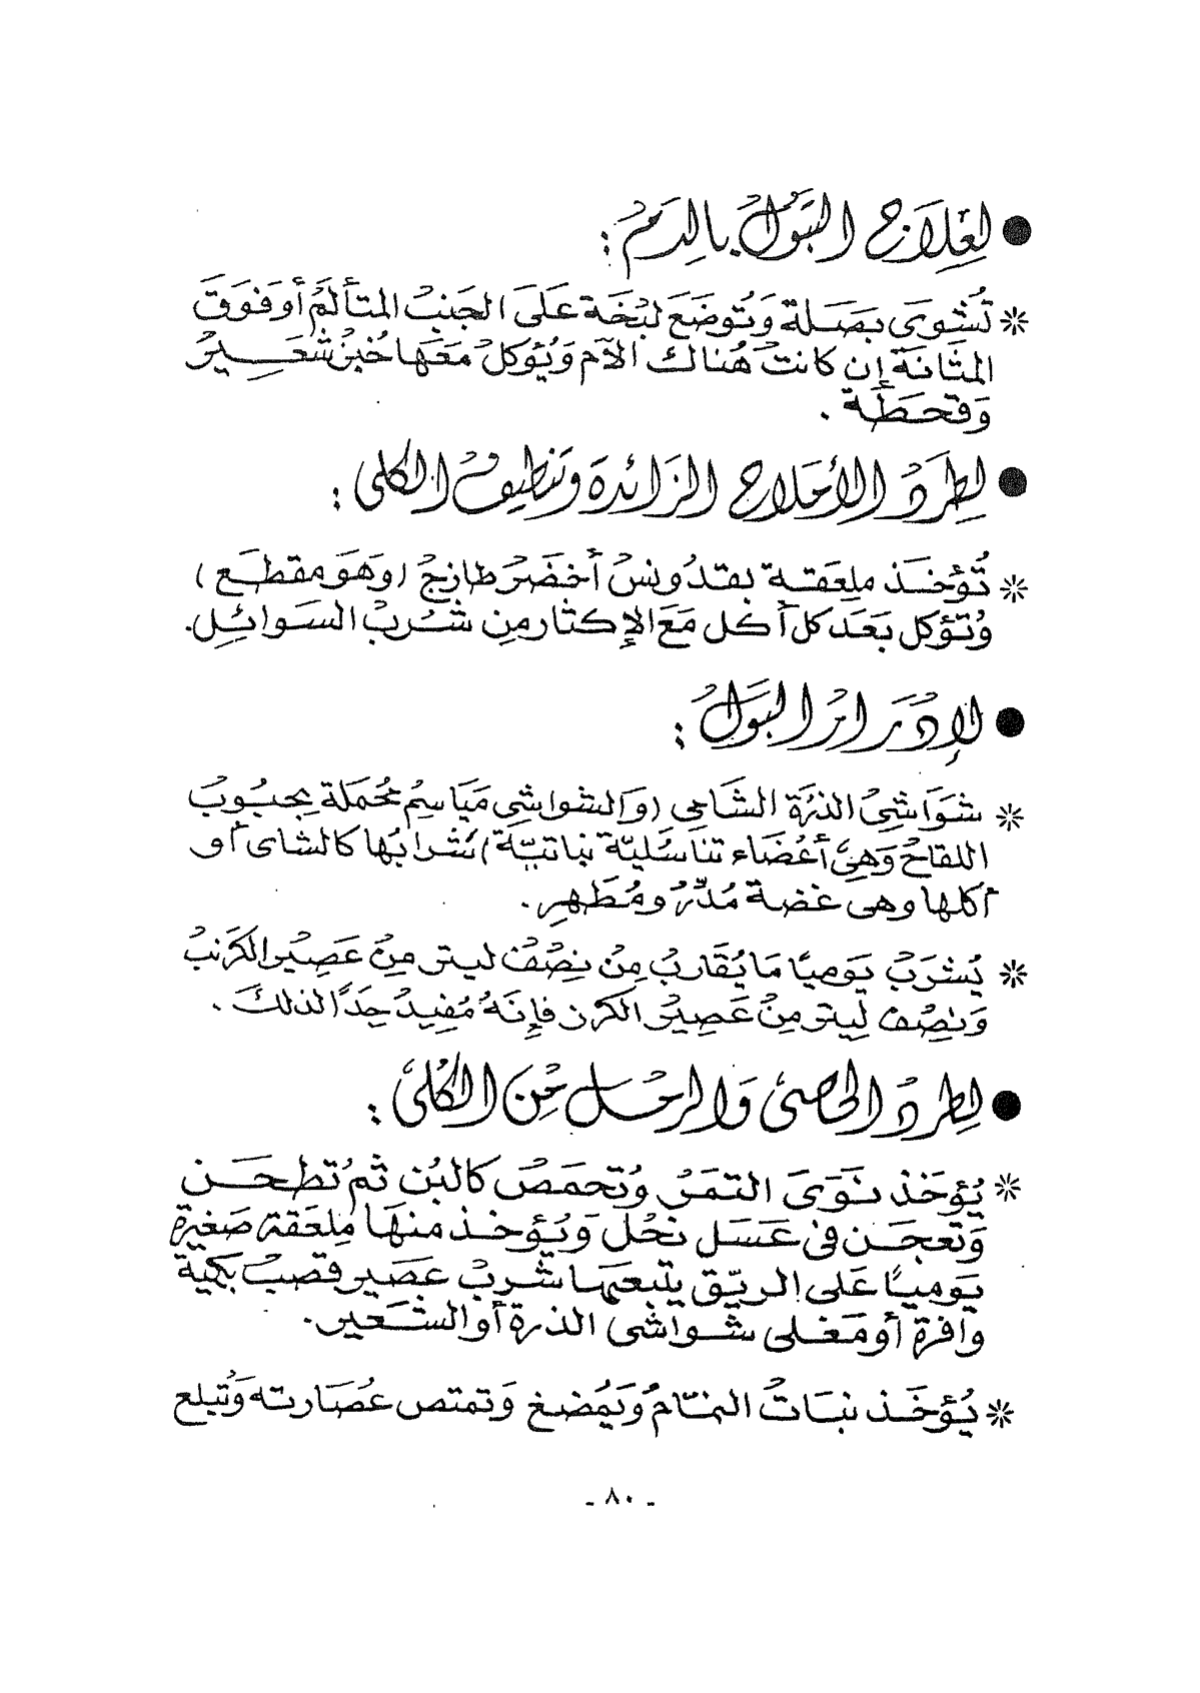 ● لعِلَاج البَوْلُ بالِدَمْ :
* تُشوَى بَصَلة وَتُوضَعَ لبْخَة عَلَىَ الجَنبْ المتألمْ أو فَوَقَ
المثَانَة إن كانتْ هُناك الآم وَيُؤكلْ مَعَها خُبزْ شعَـيرْ
وَقحَطَة .
● لِطرَدْ الأمْلاح الزَائدة وتَنظيفْ الكلى :
* تُؤخَذ ملِعَقة بقدْونسْ أخضَرْ طازجْ (وَهَوَ مقطَع)
وَتؤكل بَعَد كل أكل مَعَ الإكثار مِن شُربْ السَوائِل.
● لإدْرَارْ البَوَلْ :
* شوَاشِىْ الذرَة الشَامى (والشواشى مَيَاسِمْ مُحمَلة بحبُوبْ
اللقاحْ وَهِىَ أعْضَاء تنَاسُليّة نباتيّة) نشرَابُها كالشاى أو
أكلها وهى غضة مُدّرْ ومُطَهِر.
* يُشرَبْ يَومِيًا مَا يُقَاربْ مِنْ نِصْفْ ليتر مِنْ عَصِيرْ الكَرَنبْ
وَنِصْف لِيتر مِنْ عَصِيرْ الكرز فإنَهُ مُفِيدْ جِدًا لذلكَ .
● لِطرَدْ الحصىَ وَالرمْل مْن الكُلىَ :
* يُؤخَذ نَوَىَ التمَرْ وَتحمَصْ كالبُن ثمْ تُطحَن
وَتعجَن فى عَسَل نحْل وَيُؤخذ منهَا مِلعَقة صَغيرة
يَومِيًا عَلى الريّق يتبعَها شربْ عَصَير قصبْ بكمية
وافرة أو مَغلى شواشى الذرة أو الشَعير.
* يُؤخَذ نبَاتْ النمّامْ وَيَمُضغ وَتمتص عُصَارته وَتُبلع
- ٨٠ -